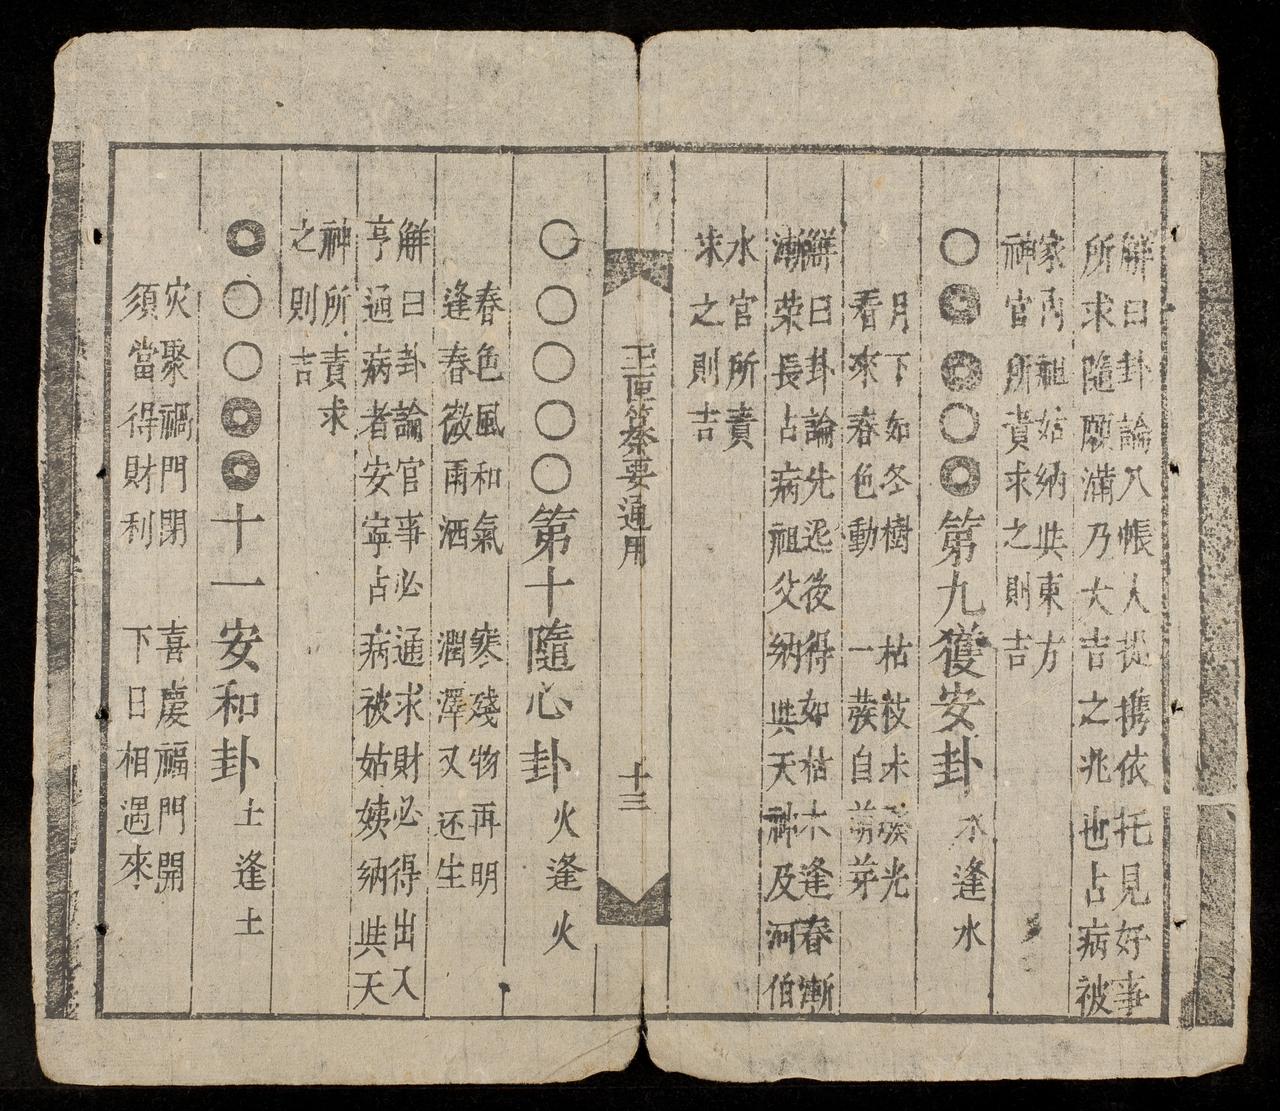 解曰卦論入帳人提携依托見好事
所求隨願滿乃大吉之兆也占病被
家內祖姑納與東方
神官所責求之則吉
○◎◎○◎第九獲安卦 水逢水
月下如冬樹 枯枝未發光
看來春色動 一發自萌芽
解曰卦論先迍後得如枯木逢春漸
漸荣長占病祖父納與天神及河伯
水官所責
求之則吉
玉匣祭要通用 十三
○○○○○第十隨心卦 火逢火
春色風和氣 寒殘物再明
逢春微雨洒 潤澤又还生
解曰卦論官事必通求財必得出入
亨通病者安寧占病被姑姨納與天
神所責求
之則吉
◎○○◎◎十一安和卦 土逢土
灾聚禍門閉 喜慶福門開
須當得財利 下日相遇來